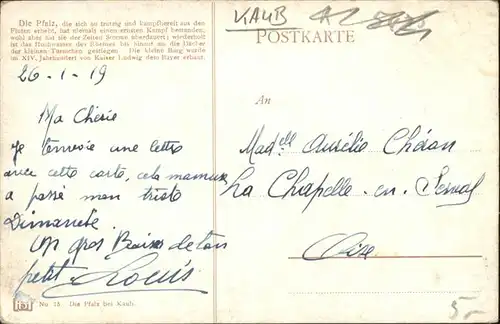 Die Pfalz, die sich so trutzig und kampfbereit aus den
Fluten erhebt, hat niemals einen ernsten Kampf bestanden,
wohl aber hat sie der Zeiten Stroms überdauert; wiederholt
ist das Hochwasser des Rheines bis hinauf an die Dächer
der kleinen Türmchen gestiegen. Die kleine Burg wurde
im XIV. Jahrhundert von Kaiser Ludwig dem Bayer erbaut.
KAUB
POSTKARTE
26-1-19
An
Ma Chérie
Je t'envoie une lettre
avec cette carte, cela
a passé mon triste
Dimanche
un gros Baiser de ton
petit Louis
Madelle Aurélie
La Chapelle-en-Serval
Oise
No. 15 Die Pfalz bei Kaub.
5-